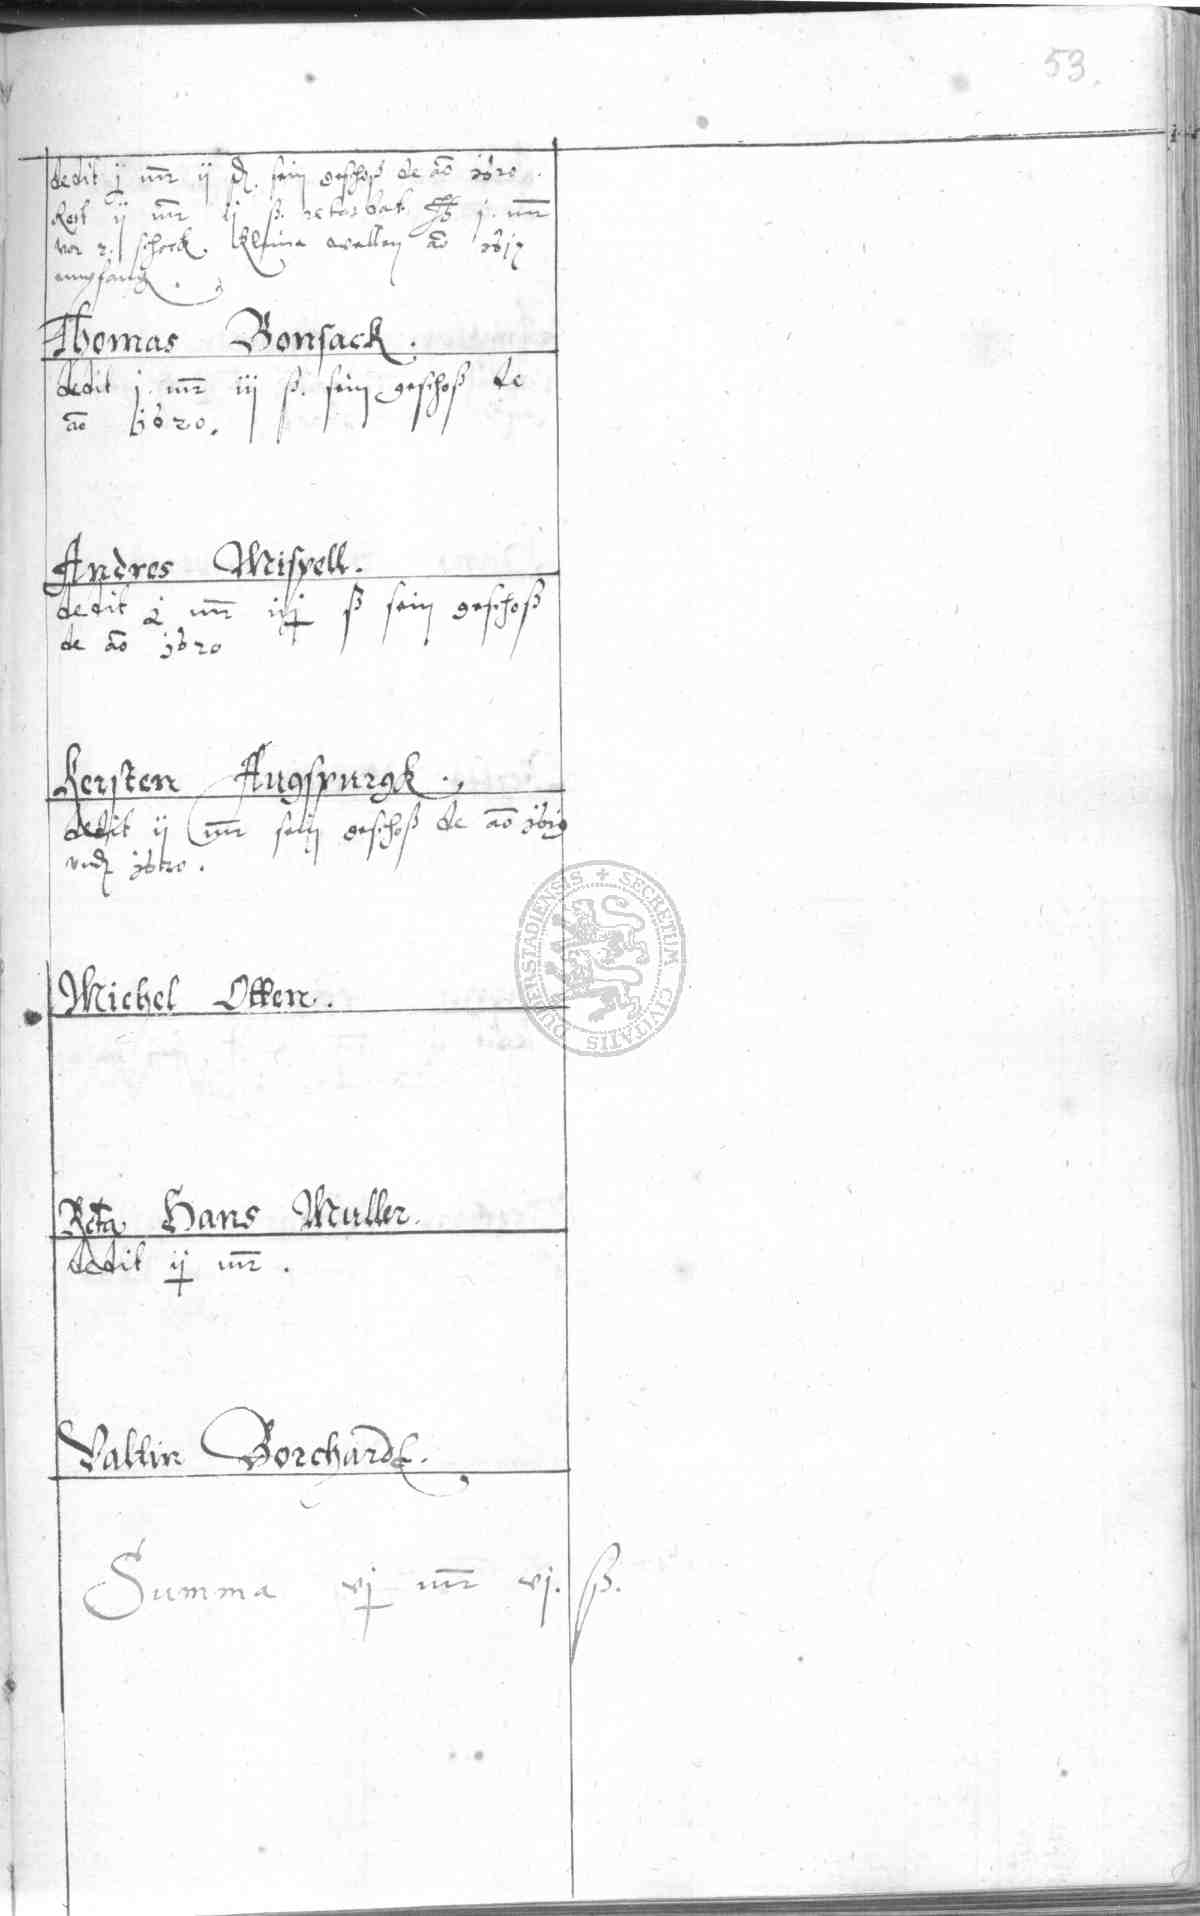 53.
dedit j mr ij ß. sein geschoß de ao 1620.
Rest ij mr ij ß. j. mr
vor 2. schock. kleine wellen ao 1617
empfang.
Thomas Bonsack.
dedit j. mr iij ß. sein geschoß de
ao 1620.
Andres Mispell.
dedit j mr iij ß sein geschoß
de ao 1620
Kersten Augspurgk.
dedit ij mr sein geschoß de ao 1619
und 1620.
Michel Otten.
Relicta Hans Muller.
dedit ij mr.
Valtin Borchardt.
Summa vj mr vj. ß.
DUDERSTADIENSIS + SECRETUM CIVITATIS